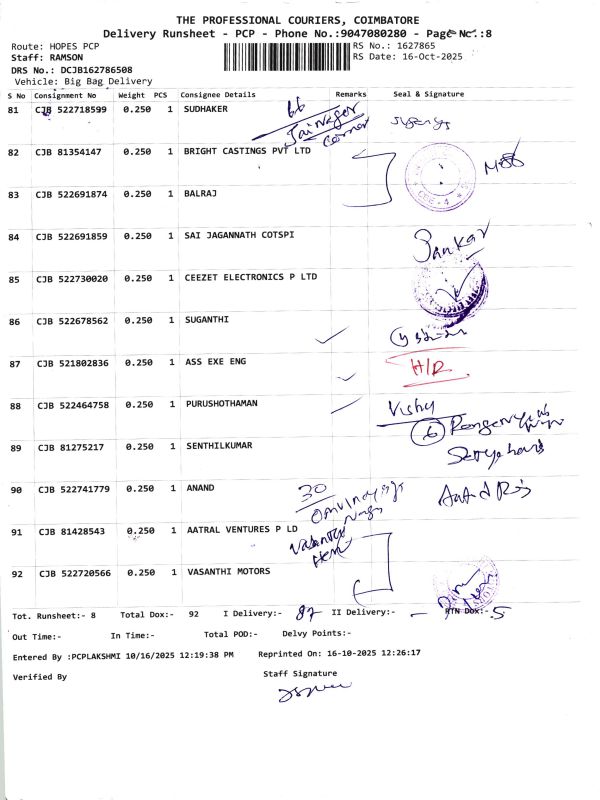 THE PROFESSIONAL COURIERS, COIMBATORE
Delivery Runsheet - PCP - Phone No.:9047080280 - Page No.:8
Route: HOPES PCP RS No.: 1627865
Staff: RAMSON RS Date: 16-Oct-2025
DRS No.: DCJB162786508
Vehicle: Big Bag Delivery
S No Consignment No Weight PCS Consignee Details Remarks Seal & Signature
81 CJB 522718599 0.250 1 SUDHAKER 66
Jai Nagar
Corner
82 CJB 81354147 0.250 1 BRIGHT CASTINGS PVT LTD
CBE - 4
83 CJB 522691874 0.250 1 BALRAJ
84 CJB 522691859 0.250 1 SAI JAGANNATH COTSPI Sankar
85 CJB 522730020 0.250 1 CEEZET ELECTRONICS P LTD
86 CJB 522678562 0.250 1 SUGANTHI
87 CJB 521802836 0.250 1 ASS EXE ENG H/R
88 CJB 522464758 0.250 1 PURUSHOTHAMAN Vishy
6
89 CJB 81275217 0.250 1 SENTHILKUMAR
90 CJB 522741779 0.250 1 ANAND 30
91 CJB 81428543 0.250 1 AATRAL VENTURES P LD
92 CJB 522720566 0.250 1 VASANTHI MOTORS
Tot. Runsheet:- 8 Total Dox:- 92 I Delivery:- 87 II Delivery:- - RTN Dox:- 5
Out Time:- In Time:- Total POD:- Delvy Points:-
Entered By :PCPLAKSHMI 10/16/2025 12:19:38 PM Reprinted On: 16-10-2025 12:26:17
Verified By Staff Signature